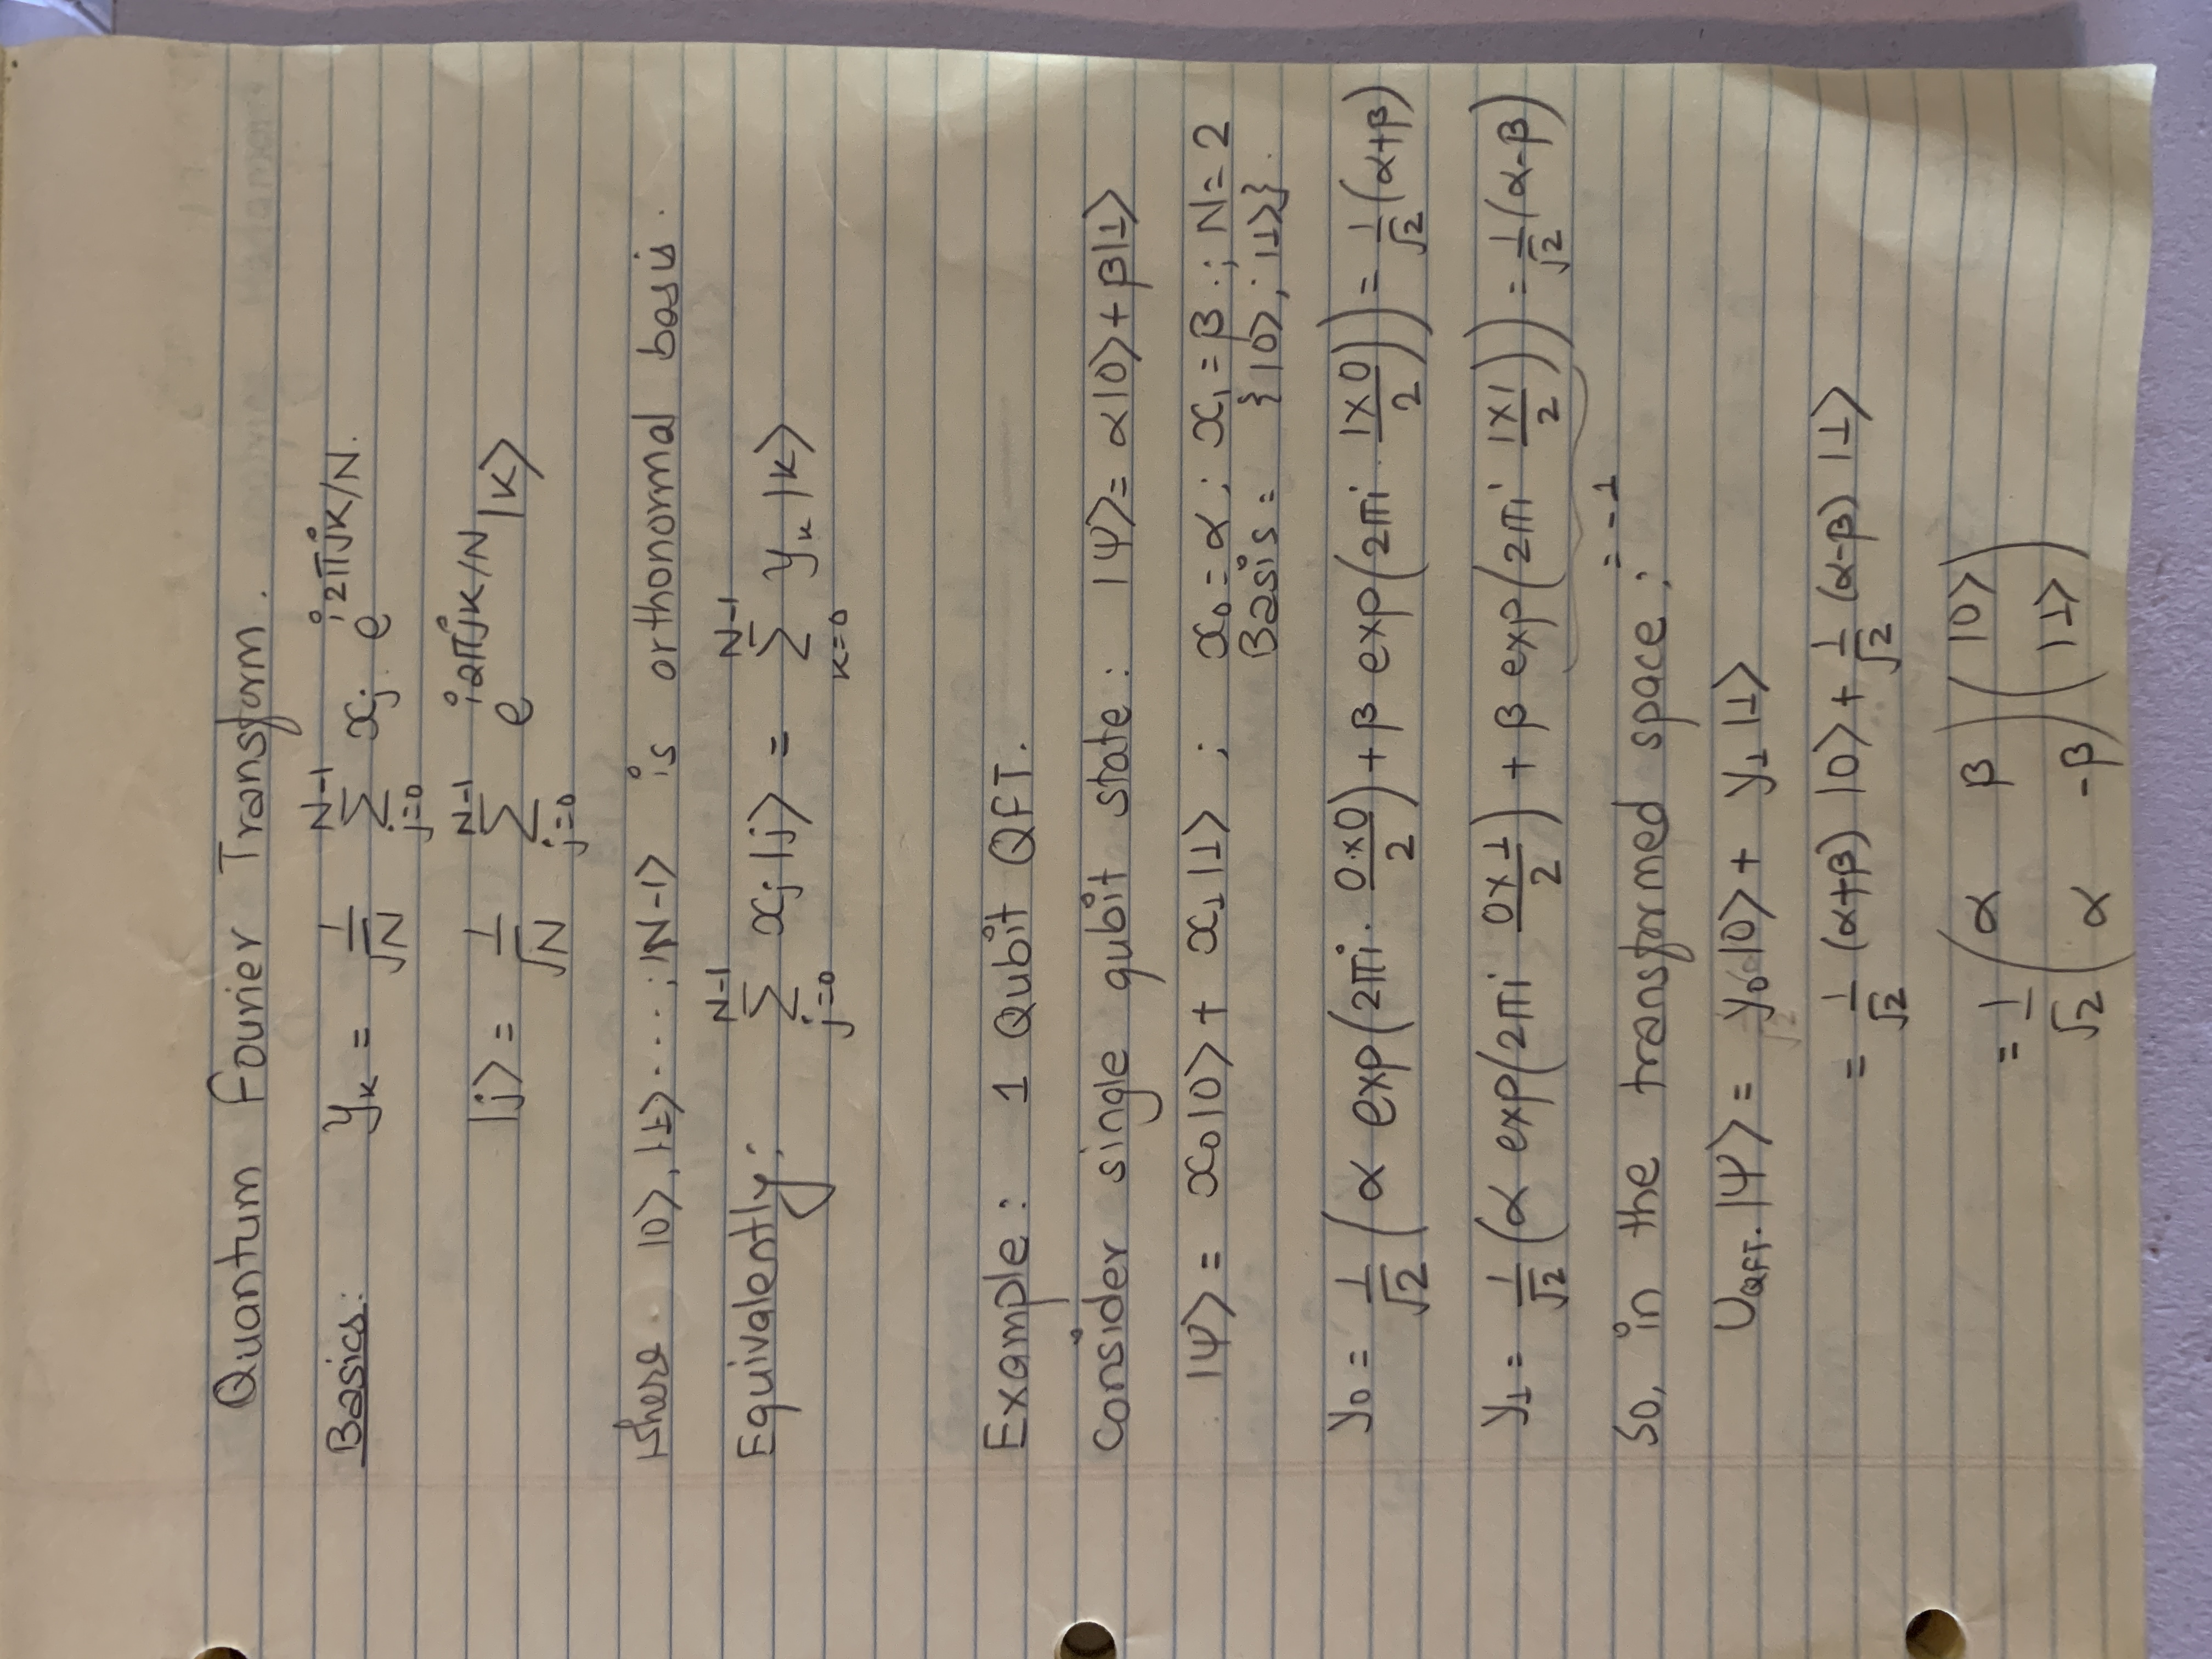 Quantum Fourier Transform.
Basics: y_k = 1/√N Σ_{j=0}^{N-1} x_j e^{i2πjk/N}.
|j⟩ = 1/√N Σ_{j=0}^{N-1} e^{i2πjk/N} |k⟩
where |0⟩, |1⟩ ....; |N-1⟩ is orthonormal basis.
Equivalently: Σ_{j=0}^{N-1} x_j |j⟩ = Σ_{k=0}^{N-1} y_k |k⟩
Example: 1 Qubit QFT.
consider single qubit state: |Ψ⟩ = α|0⟩ + β|1⟩
|Ψ⟩ = x_0|0⟩ + x_1|1⟩ ; x_0 = α ; x_1 = β ; N = 2
Basis = {|0⟩; |1⟩}.
y_0 = 1/√2 (α exp(2πi · 0×0/2) + β exp(2πi · 1×0/2)) = 1/√2 (α+β)
y_1 = 1/√2 (α exp(2πi 0×1/2) + β exp(2πi 1×1/2)) = 1/√2 (α-β)
= -1
So, in the transformed space:
U_QFT. |Ψ⟩ = y_0|0⟩ + y_1|1⟩
= 1/√2 (α+β) |0⟩ + 1/√2 (α-β) |1⟩
= 1/√2 (α β; α -β) (|0⟩; |1⟩)